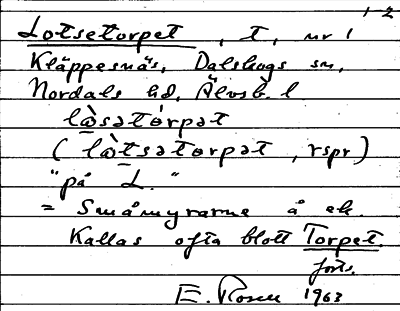 1-2
Lotsetorpet, t, nr 1
Kläppesnäs, Dalskogs sn,
Nordals hd, Älvsb. l
la̍̀sətɵrpət
(làtsətɵrpət, rspr)
"på L."
= Småmyrarne å ek.
Kallas ofta blott Torpet.
forts.
E. Rosen 1963